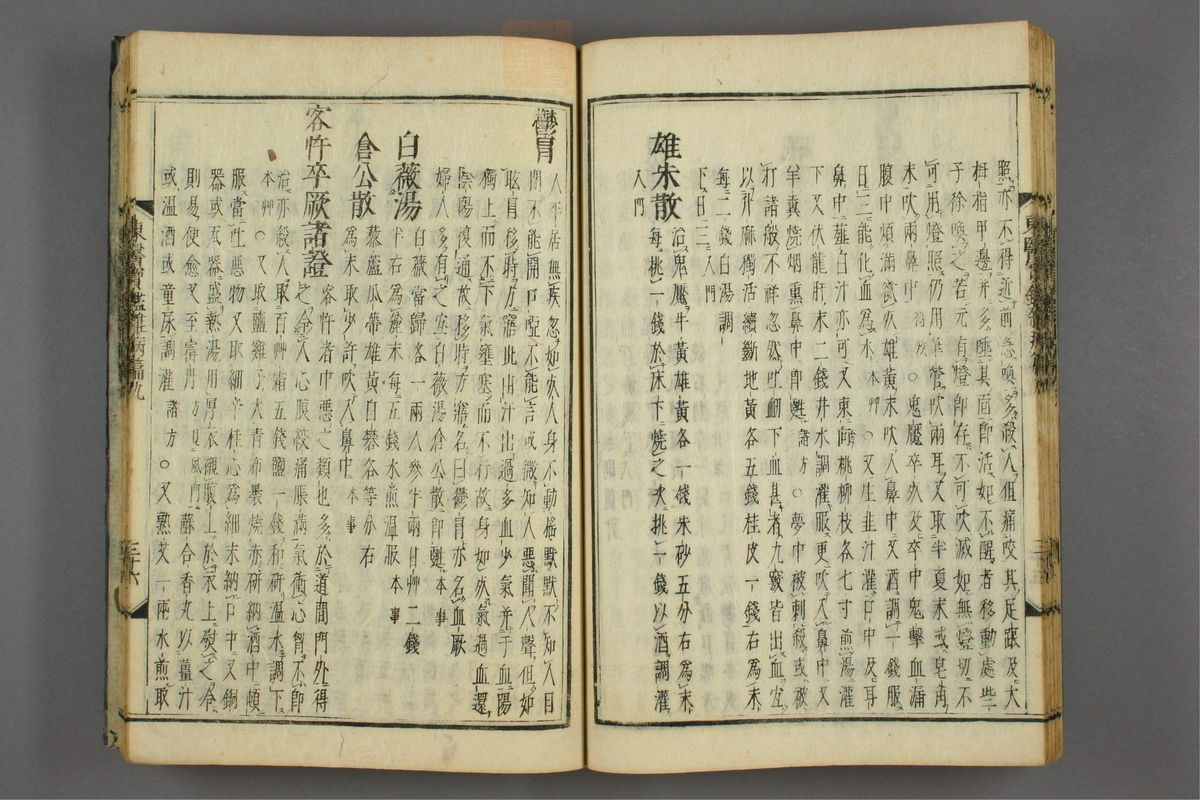 照亦不得近前急喚多殺人但痛咬其足跟及大
拇指甲邊幷多唾其面卽活如不醒者移動處些
子徐喚之若元有燈卽存不可吹滅如無燈切不
可用燈照仍用筆管吹兩耳又取半夏末或皂角
末吹兩鼻中 得效 ○鬼魘卒死及卒中鬼擊血漏
腹中煩滿欲死雄黃末吹入鼻中又酒調一錢服
日三能化血爲水 本草 ○又生韭汁灌口中及耳
鼻中薤白汁亦可又東向桃柳枝各七寸煎湯灌
下又伏龍肝末二錢井水調灌服更吹入鼻中又
羊糞燒烟熏鼻中卽甦 諸方 ○夢中被刺殺或被
打諸般不祥忽然吐衄下血甚者九竅皆出血宜
以升麻獨活續斷地黃各五錢桂皮一錢右爲末
每二錢白湯調
下日三 入門
雄朱散 治鬼魘牛黃雄黃各一錢朱砂五分右爲末
每挑一錢於床下燒之次挑一錢以酒調灌
入門
鬱冒 人平居無疾忽如死人身不動搖默默不知人目
閉不能開口啞不能言或微知人惡聞人聲但如
眩冒移時方寤此由汗出過多血少氣幷于血陽
獨上而不下氣壅塞而不行故身如死氣過血還
陰陽復通故移時方寤名曰鬱冒亦名血厥
婦人多有之宜白薇湯倉公散卽甦 本事
白薇湯 白薇當歸各一兩人參半兩甘草二錢
半右爲麤末每五錢水煎溫服 本事
倉公散 藜蘆瓜蒂雄黃白礬各等分右
爲末取少許吹入鼻中 本事
客忤卒厥諸證 客忤者中惡之類也多於道間門外得
之令人心腹絞痛脹滿氣衝心胷不卽
治亦殺人取百草霜五錢鹽一錢和硏溫水調下
本草 ○又取鹽雞子大靑布裹燒赤硏納酒中頓
服當吐惡物又取細辛桂心爲細末納口中又銅
器或瓦器盛熱湯用厚衣襯腹上於衣上熨之冷
則易便愈又至寶丹 方見風門 蘇合香丸以薑汁
或溫酒或童尿調灌 諸方 ○又熟艾一兩水煎取
東醫寶鑑雜病篇九
三十六